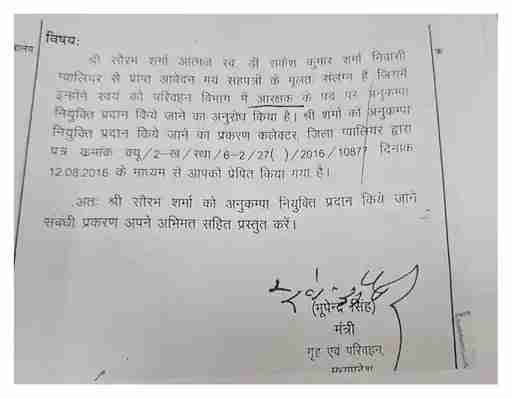 विषय:
श्री सौरभ शर्मा आत्मज स्व. डॉ राकेश कुमार शर्मा निवासी
ग्वालियर से प्राप्त आवेदन मय सहपत्रों के मूलतः संलग्न है जिसमें
इन्होंने स्वयं को परिवहन विभाग में आरक्षक के पद पर अनुकम्पा
नियुक्ति प्रदान किये जाने का अनुरोध किया है। श्री शर्मा को अनुकम्पा
नियुक्ति प्रदान किये जाने का प्रकरण कलेक्टर, जिला ग्वालियर द्वारा
पत्र क्रमांक क्यू/2-ख/स्था/6-2/27( )/2016/10877 दिनांक
12.08.2016 के माध्यम से आपको प्रेषित किया गया है।
अतः श्री सौरभ शर्मा को अनुकम्पा नियुक्ति प्रदान किये जाने
संबंधी प्रकरण अपने अभिमत सहित प्रस्तुत करें।
(भूपेन्द्र सिंह)
मंत्री
गृह एवं परिवहन,
मध्यप्रदेश